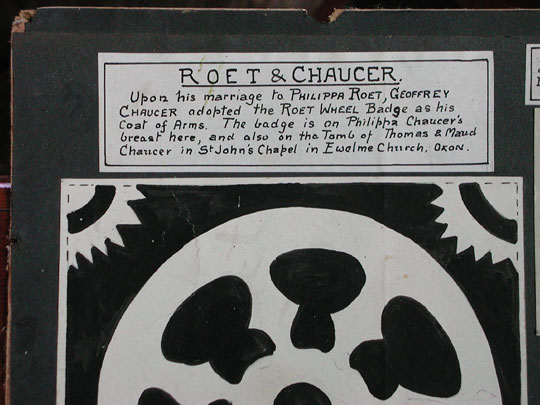 ROET & CHAUCER.
Upon his marriage to PHILIPPA ROET, GEOFFREY
CHAUCER adopted the ROET WHEEL Badge as his
Coat of Arms. The badge is on Philippa Chaucer's
breast here, and also on the Tomb of Thomas & Maud
Chaucer in St John's Chapel in Ewelme Church, OXON.